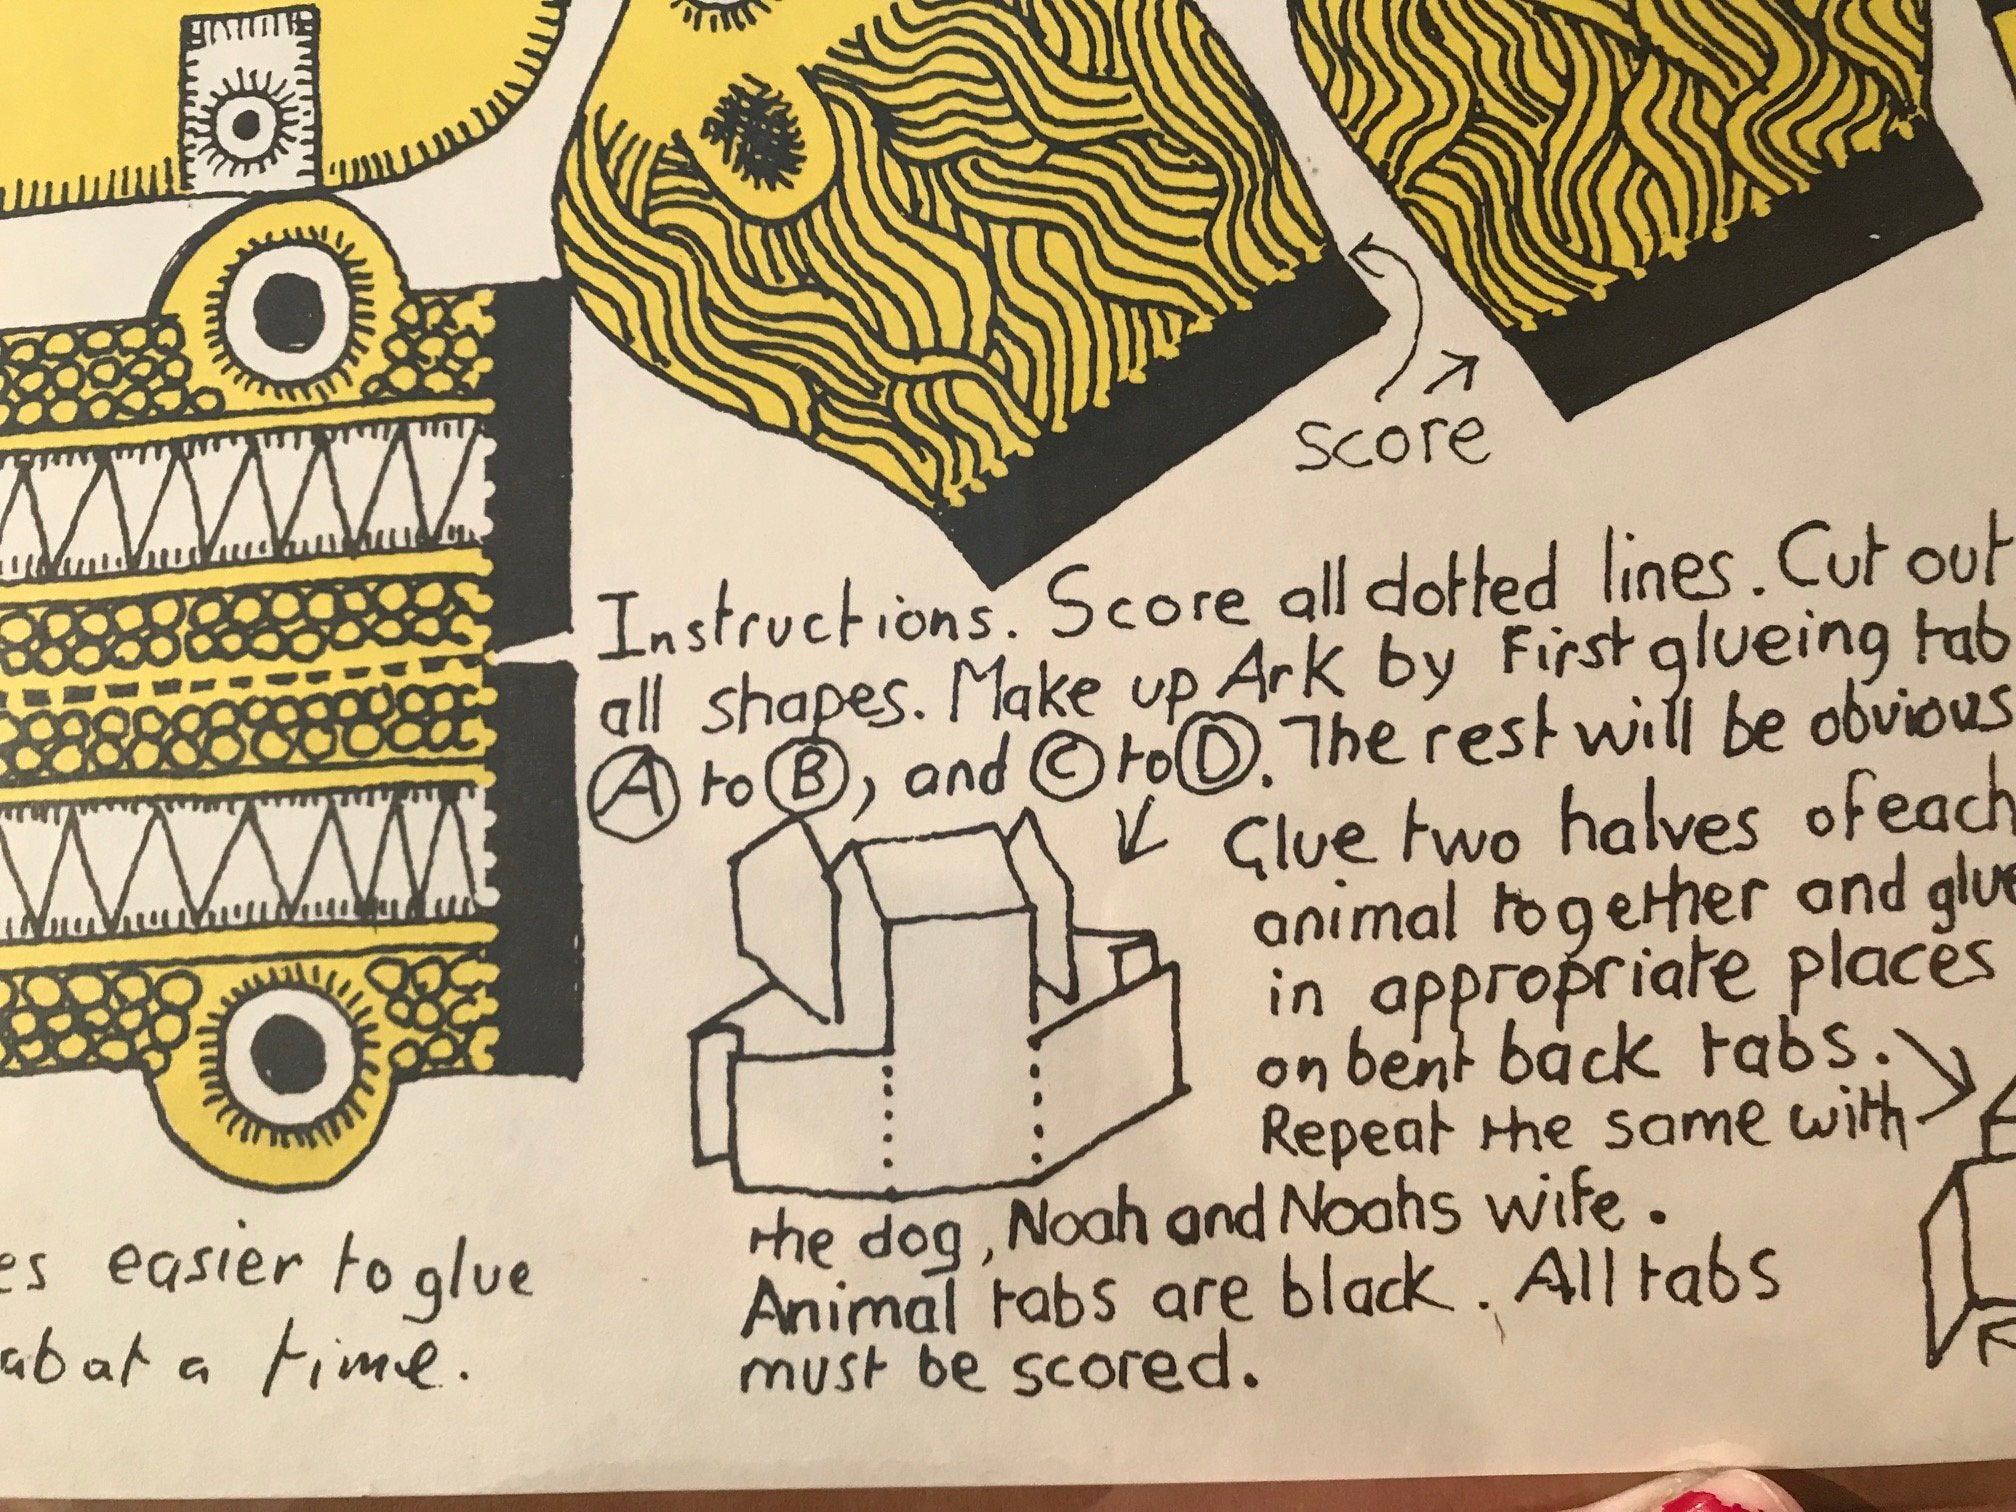 score
Instructions. Score all dotted lines. Cut out
all shapes. Make up Ark by First glueing tab
A to B, and C to D. The rest will be obvious
Glue two halves of each
animal together and glue
in appropriate places
on bent back tabs.
Repeat the same with
the dog, Noah and Noahs wife.
Animal tabs are black. All tabs
must be scored.
es easier to glue
ab at a time.